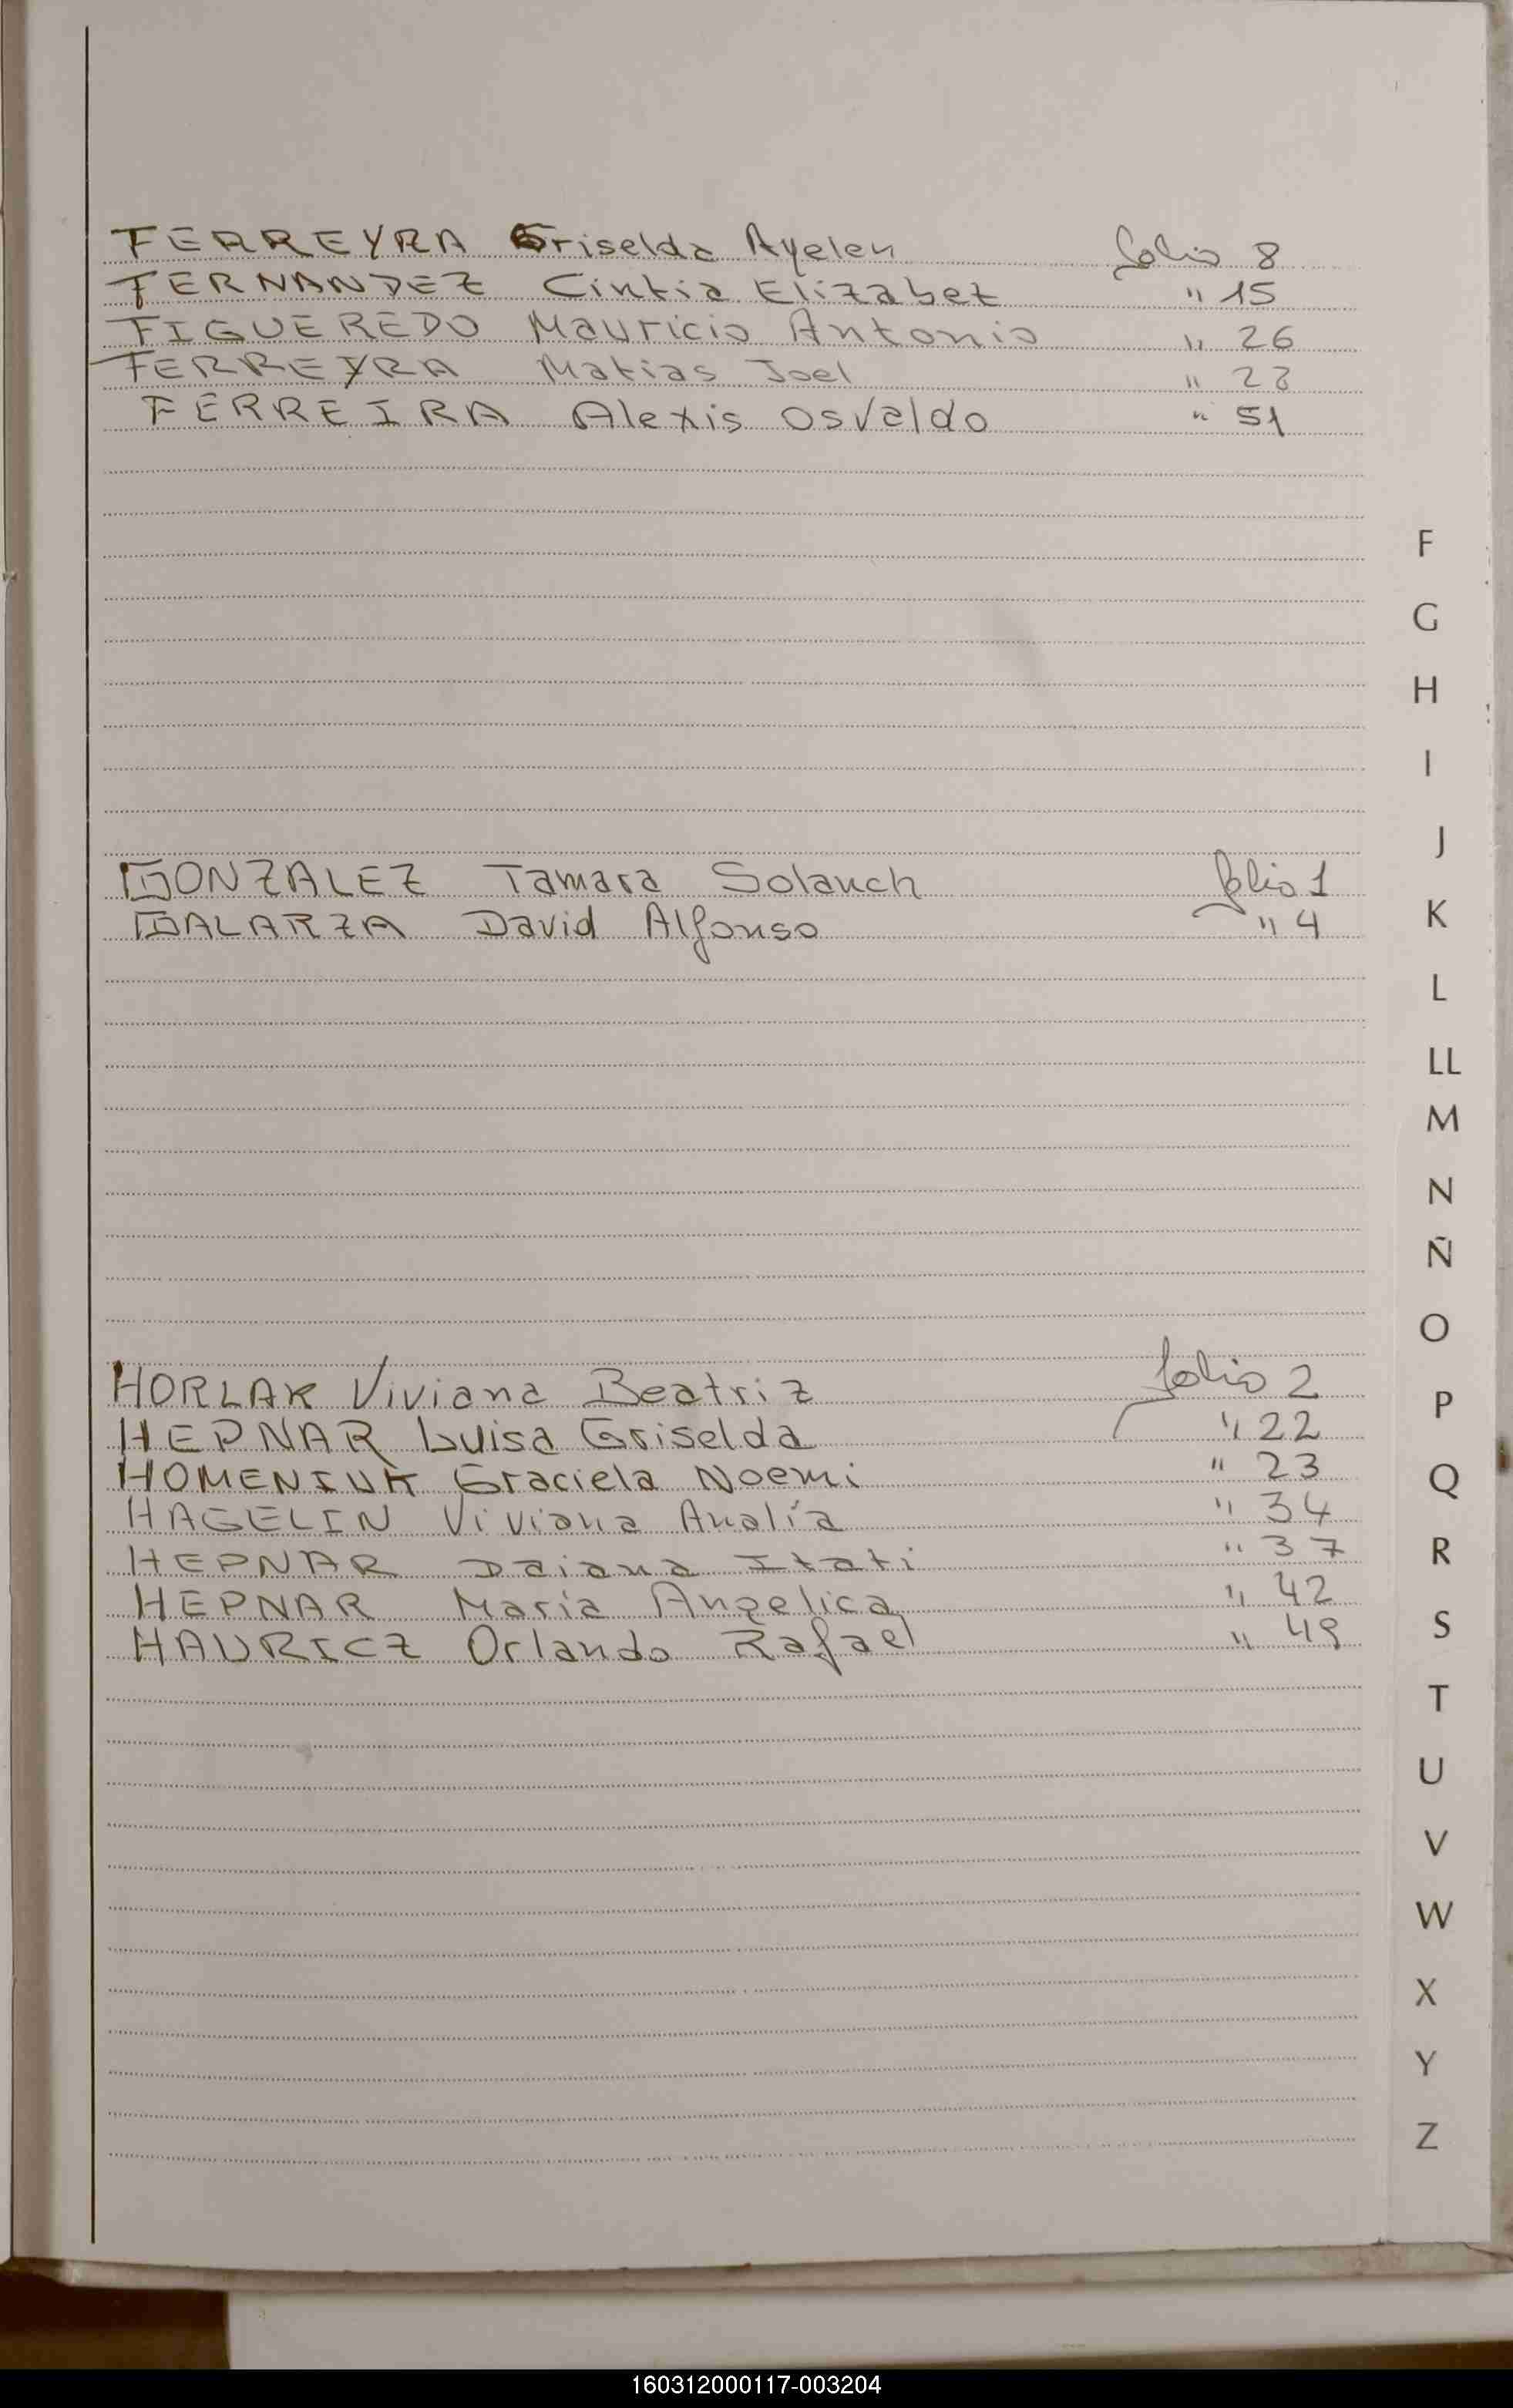 FERREYRA Griselda Ayelen folio 8
FERNANDEZ Cintia Elizabet " 15
FIGUEREDO Mauricio Antonio " 26
FERREYRA Matias Joel " 28
FERREIRA Alexis Osvaldo " 51
F
G
H
I
J
GONZALEZ Tamara Solanch folio 1
GALARZA David Alfonso " 4
K
L
LL
M
N
Ñ
O
HORLAK Viviana Beatriz folio 2
HEPNAR Luisa Griselda " 22
HOMENIUK Graciela Noemi " 23
HAGELIN Viviana Analía " 34
HEPNAR Daiana Itati " 37
HEPNAR Maria Angelica " 42
HAURICZ Orlando Rafael " 49
P
Q
R
S
T
U
V
W
X
Y
Z
160312000117-003204